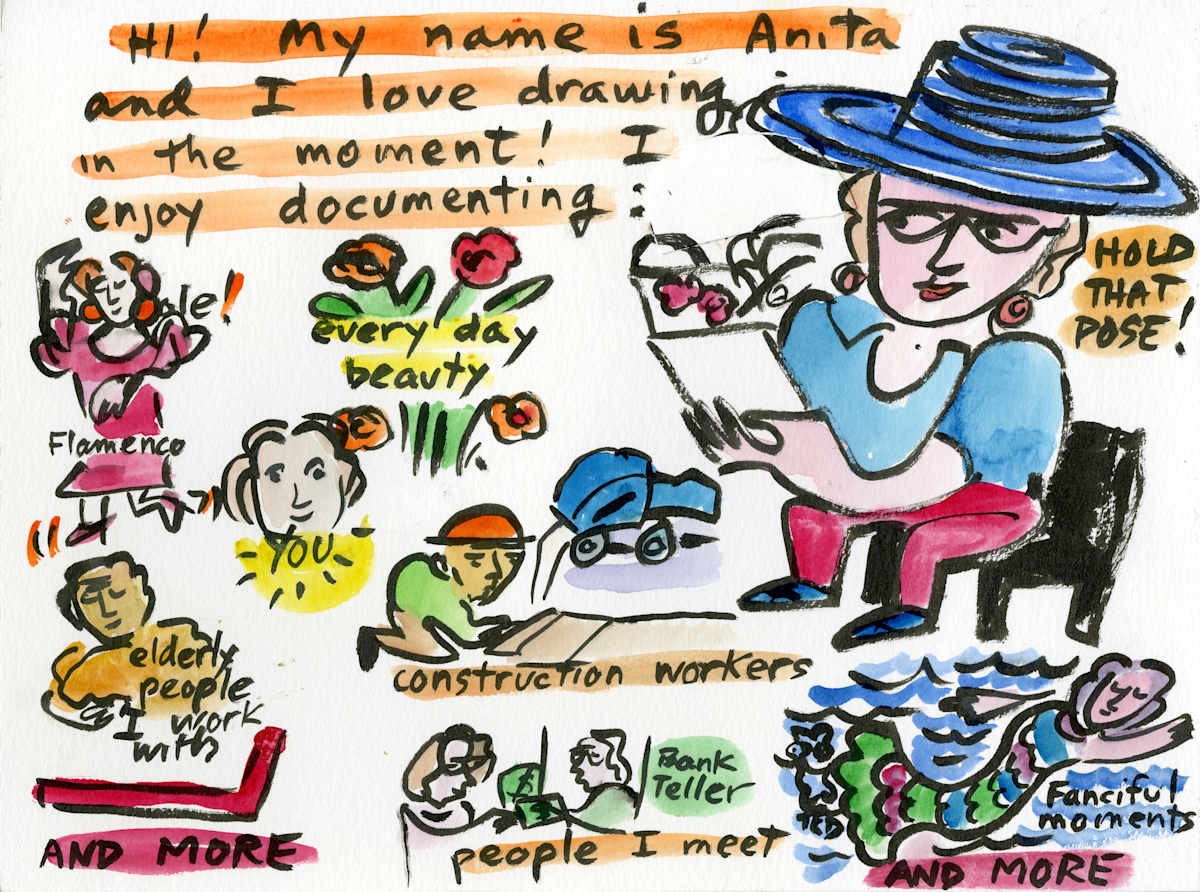 HI! My name is Anita
and I love drawing
in the moment! I
enjoy documenting:
HOLD
THAT
POSE!
ole!
Flamenco
every day
beauty
YOU
construction workers
elderly
people
I work
with
AND MORE
Bank
Teller
$
people I meet
TED
Fanciful
moments
AND MORE